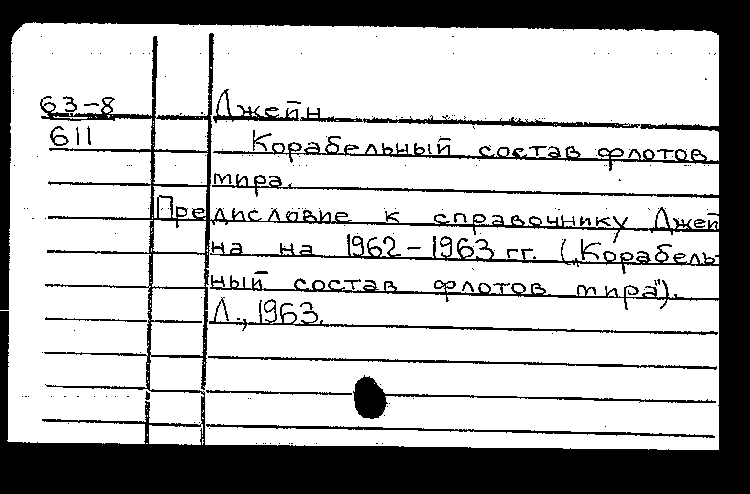 63-8 Джейн
611 Корабельный состав флотов
мира.
Предисловие к справочнику Джей
на на 1962-1963 гг. („Корабель-
ный состав флотов мира").
Л., 1963.